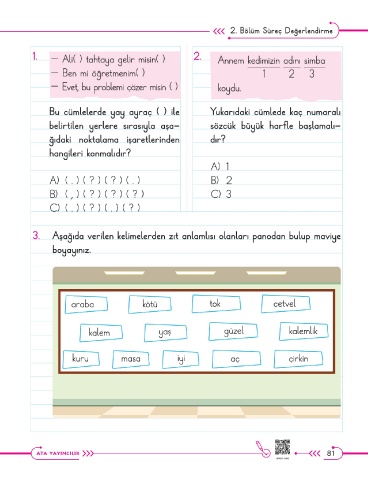 2. Bölüm Süreç Değerlendirme
1.
– Ali( ) tahtaya gelir misin( )
– Ben mi öğretmenim( )
– Evet, bu problemi çözer misin ( )
Bu cümlelerde yay ayraç ( ) ile
belirtilen yerlere sırasıyla aşa-
ğıdaki noktalama işaretlerinden
hangileri konmalıdır?
A) ( . ) ( ? ) ( ? ) ( . )
B) ( , ) ( ? ) ( ? ) ( ? )
C) ( . ) ( ? ) ( . ) ( ? )
2.
Annem kedimizin adını simba
1 2 3
koydu.
Yukarıdaki cümlede kaç numaralı
sözcük büyük harfle başlamalı-
dır?
A) 1
B) 2
C) 3
3. Aşağıda verilen kelimelerden zıt anlamlısı olanları panodan bulup maviye
boyayınız.
araba kötü tok cetvel
kalem yaş güzel kalemlik
kuru masa iyi aç çirkin
ATA YAYINCILIK
81